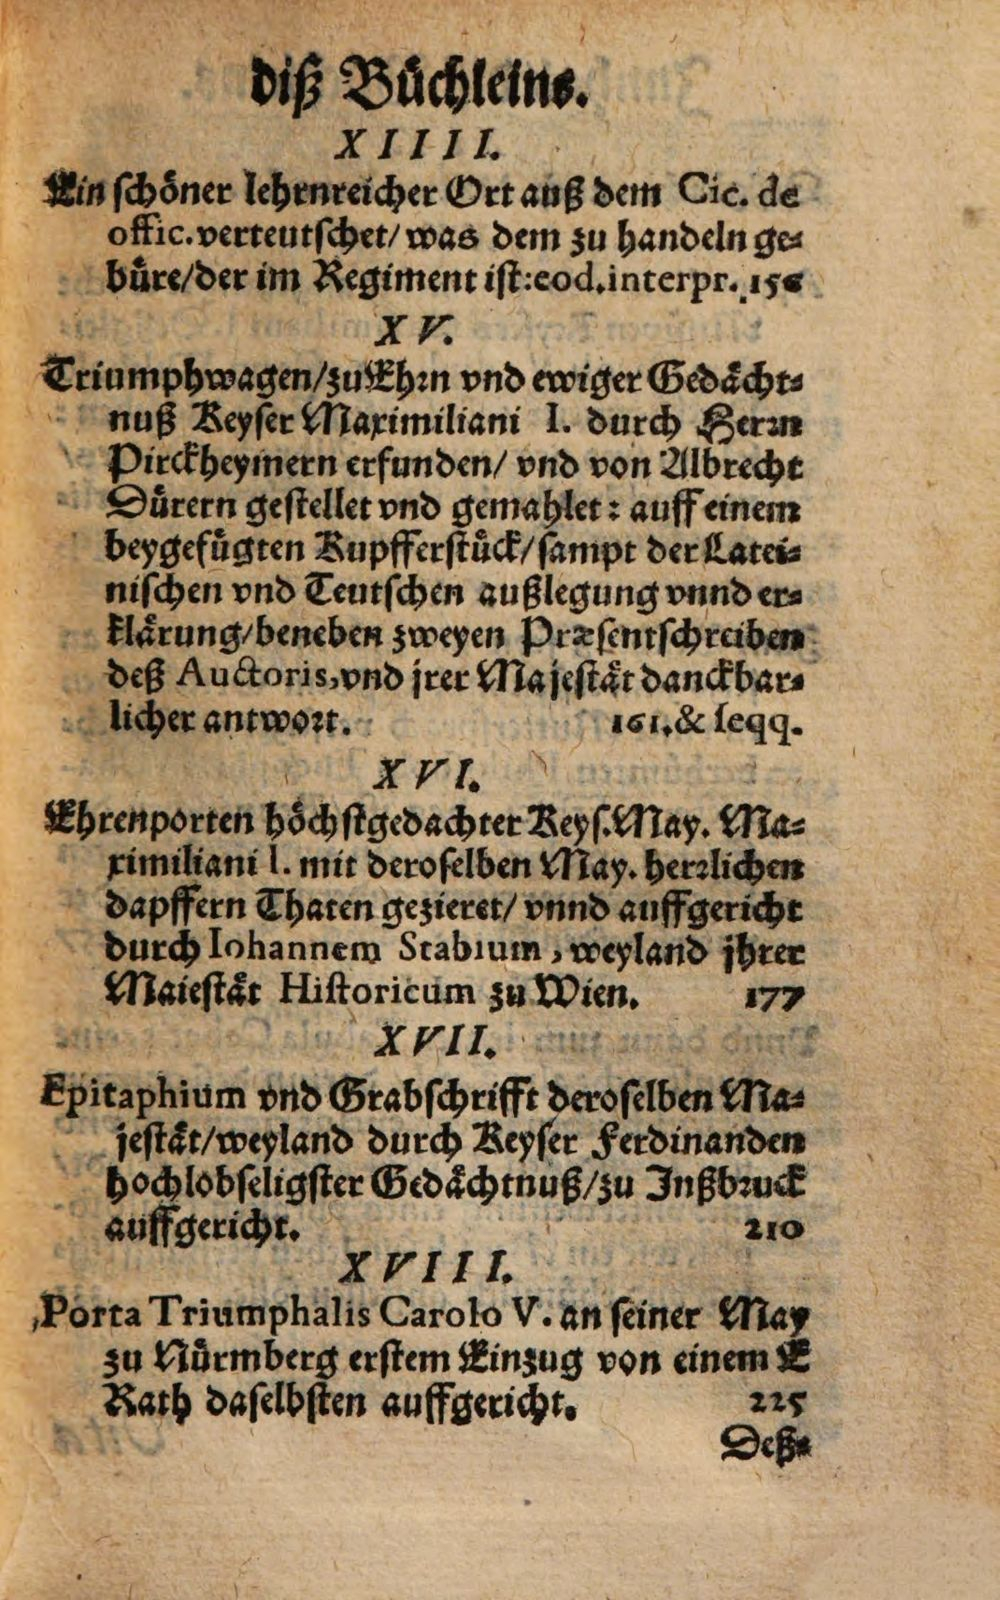 diß Bůchleins.
XIIIII.
Ein schöner lehrnreicher Ort auß dem Cic. de
offic. verteutschet/ was dem zu handeln ge-
büre/der im Regiment ist: eod. interpr. 156
XV.
Triumphwagen/zu Ehrn vnd ewiger Gedächt-
nuß Keyser Maximiliani I. durch Herrn
Pirckheymern erfunden/ vnd von Albrecht
Dürern gestellet vnd gemahlet: auff einem
beygefügten Kupfferstück/sampt der Latei-
nischen vnd Teutschen außlegung vnnd er-
klärung/beneben zweyen Præsentschreiben
deß Auctoris, vnd jrer Majestät danckbar-
licher antwort. 161. & seqq.
XVI.
Ehrenporten höchstgedachter Keys. May. Ma-
ximiliani I. mit deroselben May. herrlichen
dapffern Thaten gezieret/ vnnd auffgericht
durch Iohannem Stabium, weyland jhrer
Maiestät Historicum zu Wien. 177
XVII.
Epitaphium vnd Grabschrifft deroselben Ma-
jestät/weyland durch Keyser Ferdinanden
hochlobseligster Gedächtnuß/zu Inßbruck
auffgericht. 210
XVIII.
Porta Triumphalis Carolo V. an seiner May
zu Nürmberg erstem Einzug von einem E
Rath daselbsten auffgericht. 225
Deß-